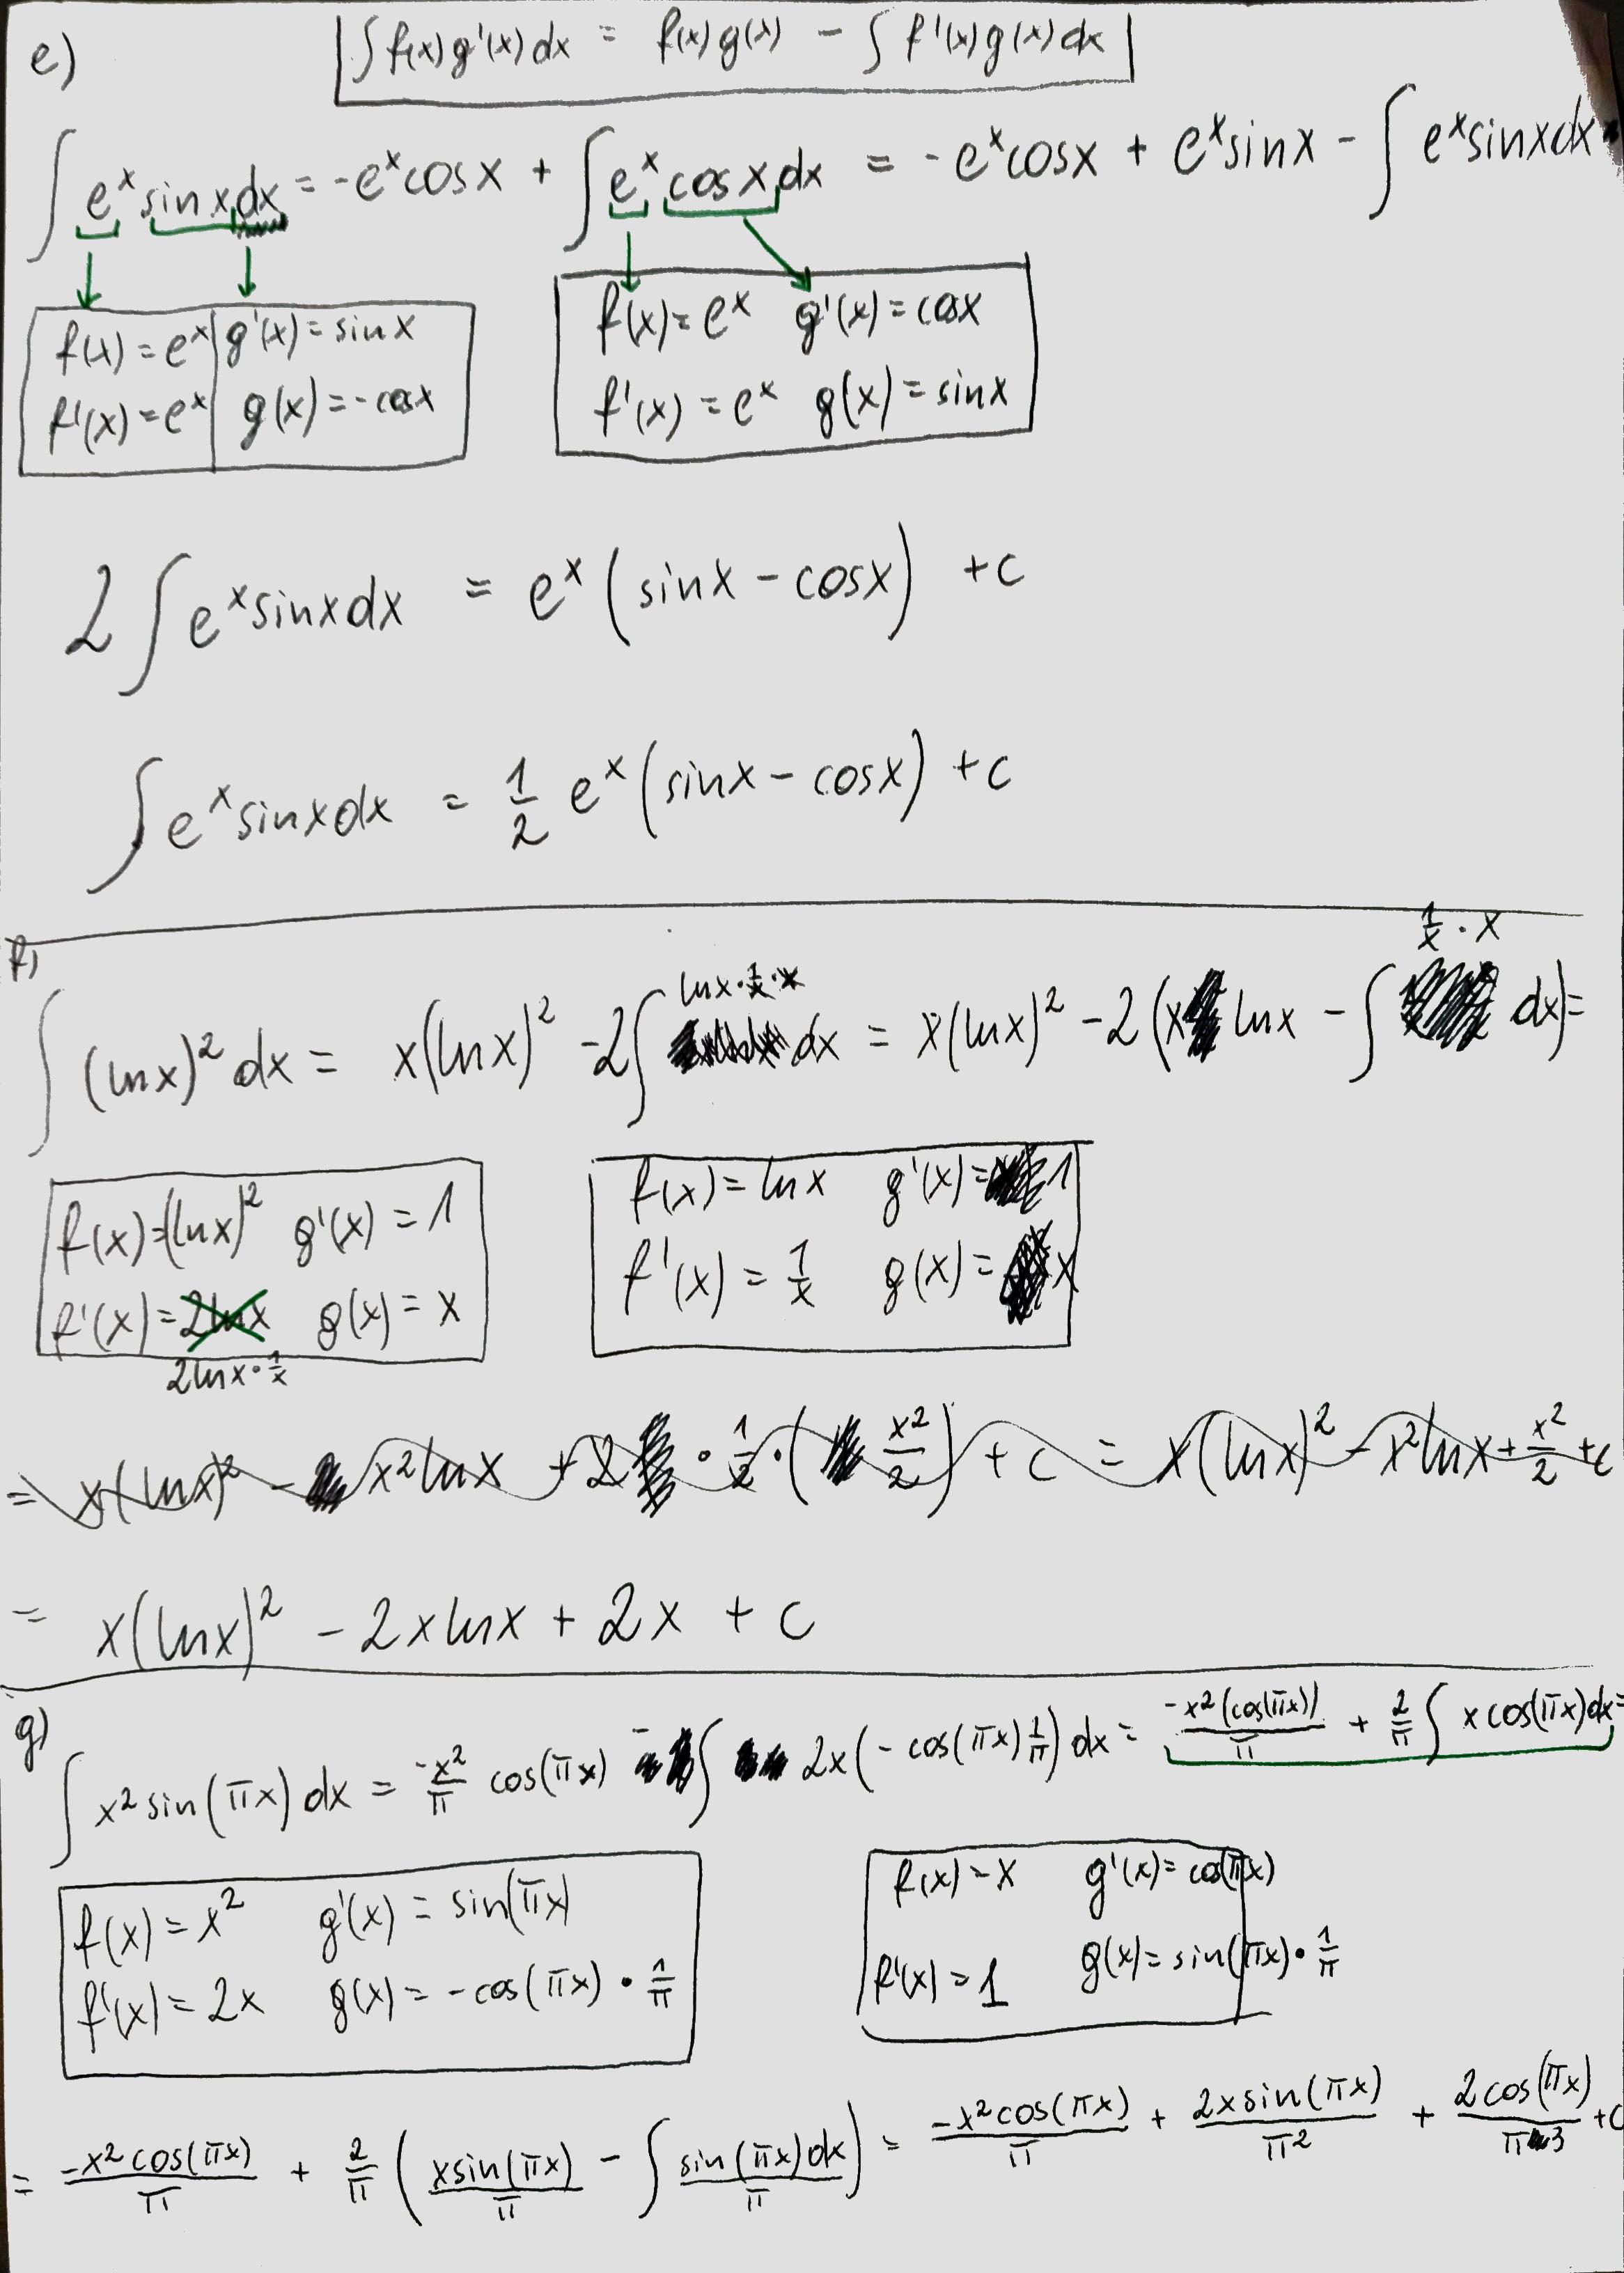 e)
∫ f(x) g'(x) dx = f(x) g(x) - ∫ f'(x) g(x) dx
∫ e^x sin x dx = -e^x cos x + ∫ e^x cos x dx = -e^x cos x + e^x sin x - ∫ e^x sin x dx
f(x) = e^x g'(x) = sin x
f'(x) = e^x g(x) = -cos x
f(x) = e^x g'(x) = cos x
f'(x) = e^x g(x) = sin x
2 ∫ e^x sin x dx = e^x (sin x - cos x) + c
∫ e^x sin x dx = 1/2 e^x (sin x - cos x) + c
f)
∫ (ln x)^2 dx = x(ln x)^2 - 2 ∫ ln x · 1/x · x dx = x(ln x)^2 - 2 (x ln x - ∫ 1/x · x dx) =
f(x) = (ln x)^2 g'(x) = 1
f'(x) = 2 ln x g(x) = x
2 ln x · 1/x
f(x) = ln x g'(x) = 1
f'(x) = 1/x g(x) = x
= x(ln x)^2 - x^2 ln x + 2 · 1/2 · (x^2/2) + c = x(ln x)^2 - x^2 ln x + x^2/2 + c
= x(ln x)^2 - 2x ln x + 2x + c
g)
∫ x^2 sin(πx) dx = -x^2/π cos(πx) - ∫ 2x (-cos(πx) 1/π) dx = -x^2(cos(πx))/π + 2/π ∫ x cos(πx) dx =
f(x) = x^2 g'(x) = sin(πx)
f'(x) = 2x g(x) = -cos(πx) · 1/π
f(x) = x g'(x) = cos(πx)
f'(x) = 1 g(x) = sin(πx) · 1/π
= -x^2 cos(πx)/π + 2/π (x sin(πx)/π - ∫ sin(πx) dx/π) = -x^2 cos(πx)/π + 2x sin(πx)/π^2 + 2 cos(πx)/π^3 + c